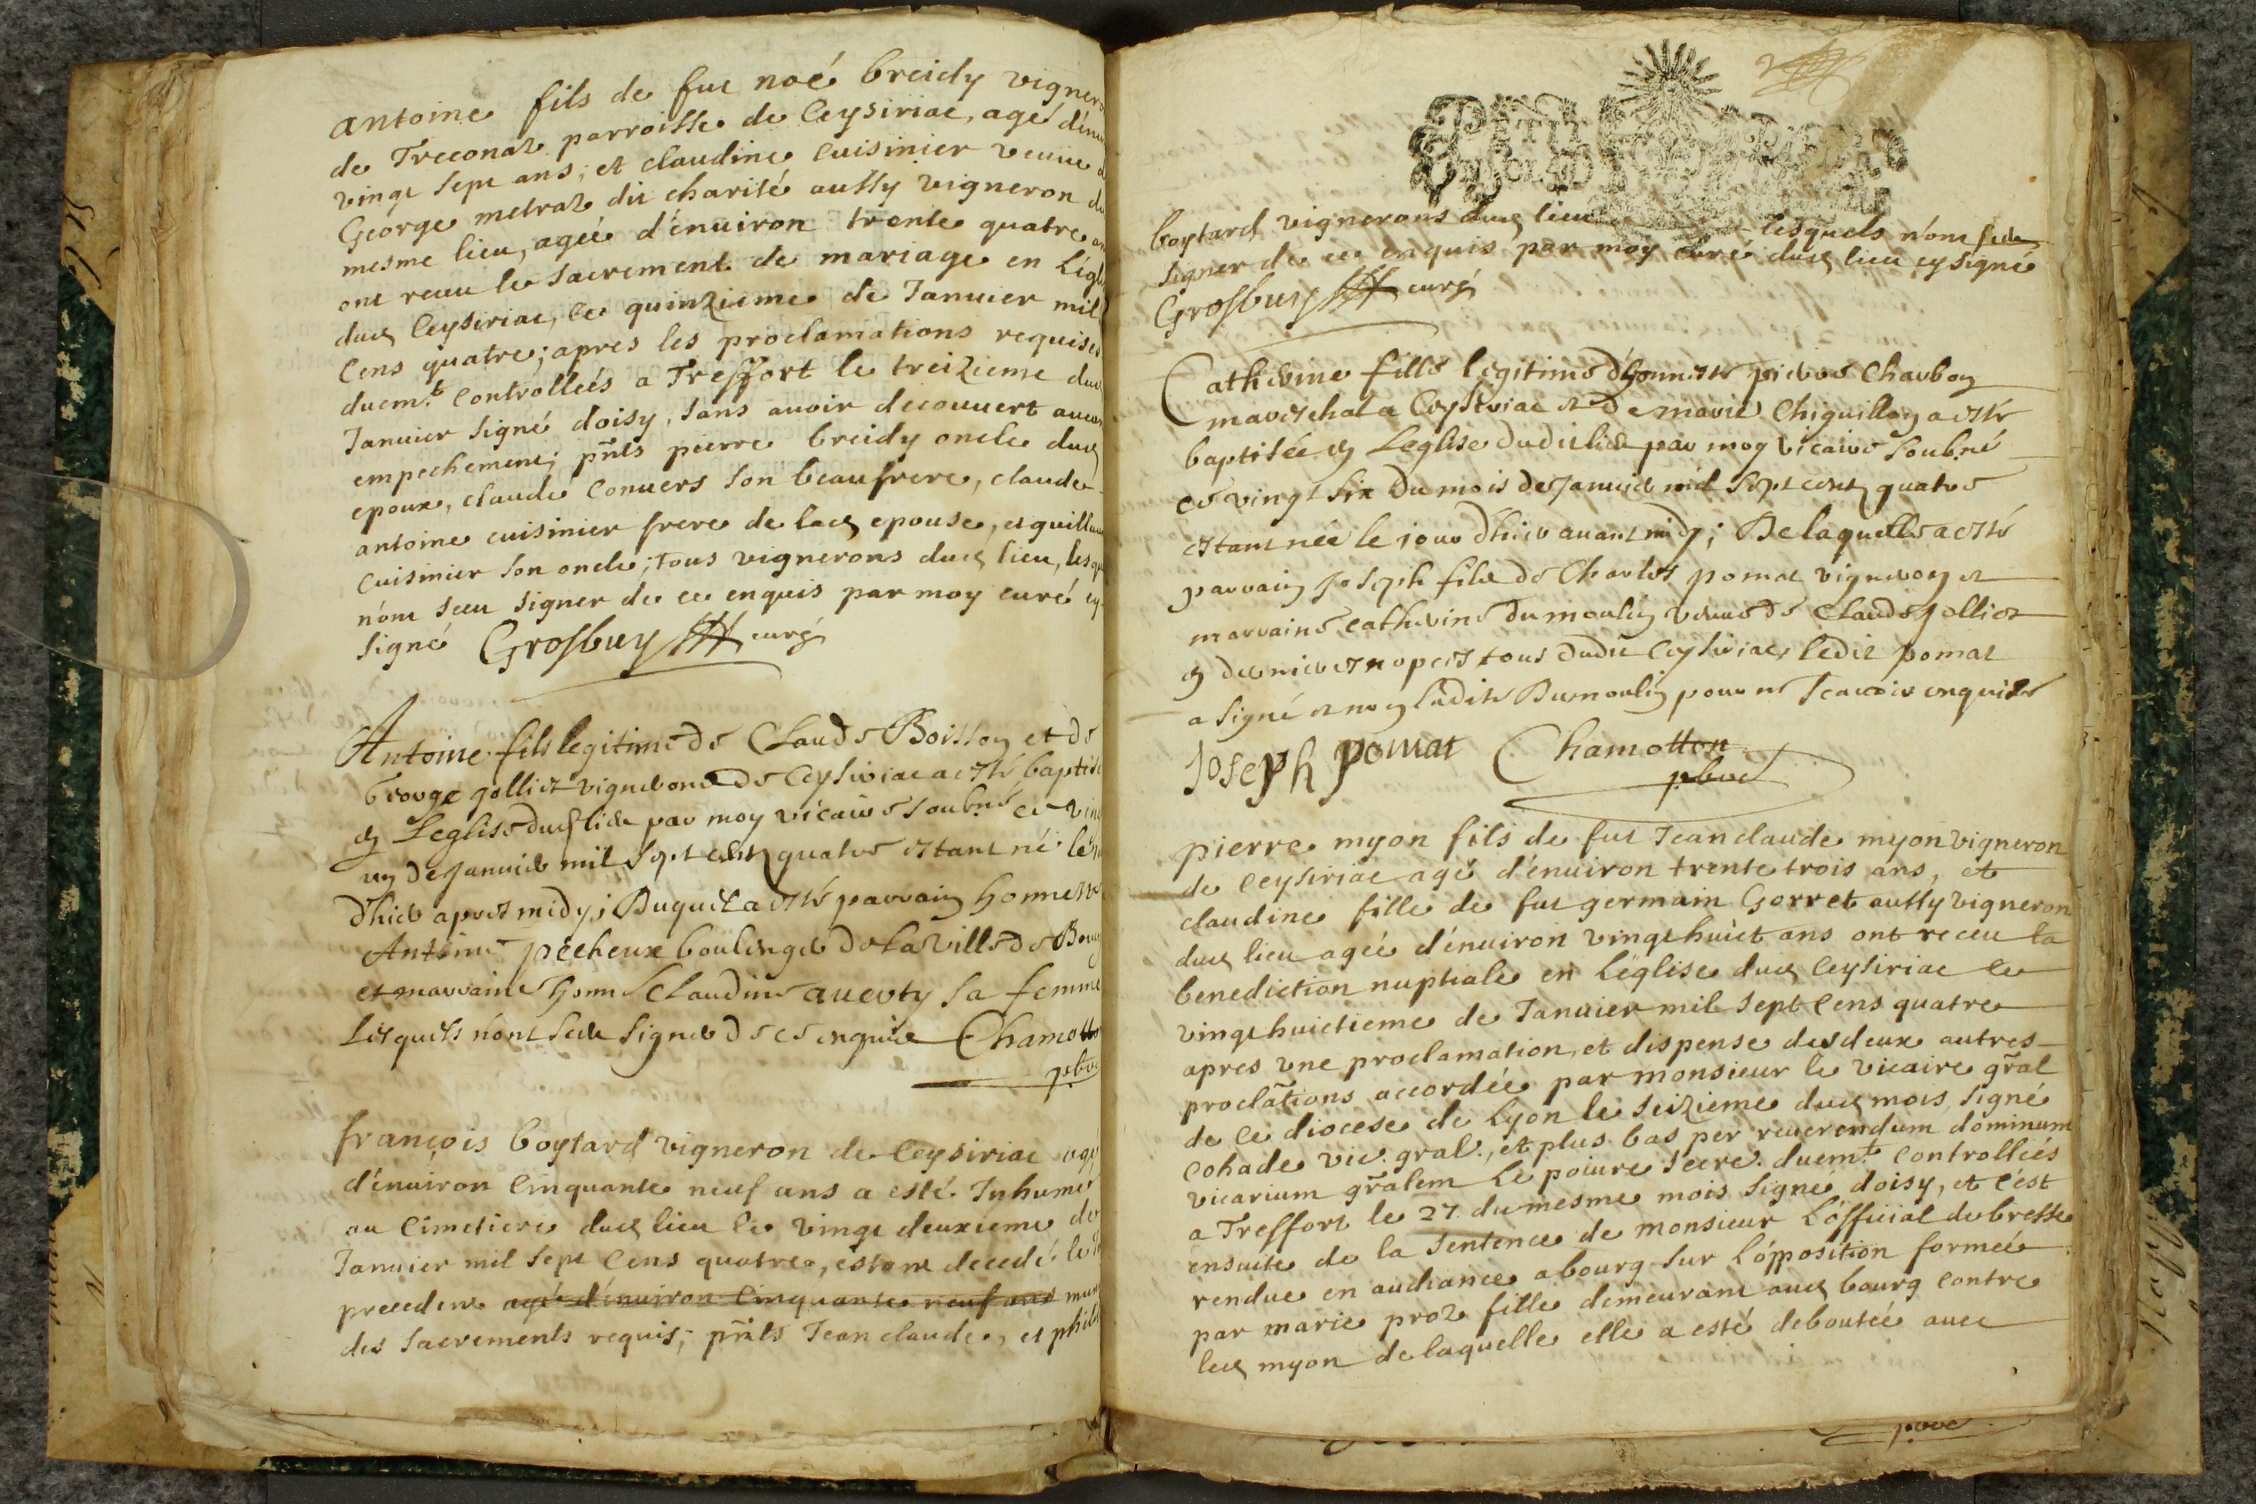 antoine fils de fut noé breidy vignero
de Treconaz parroisse de Ceysiriac, agé d'enui
vingt sept ans; et claudine cuisinier veuue d
George metraz dit charité aussy vigneron du
mesme lieu, agée d'enuiron trente quatre an
ont receu le sacrement de mariage en L'égl
dud Ceysiriac, le quinzieme de Januier mil
Cens quatre; apres les proclamations requises
duem.t controlleés a Treffort le treizieme dud
Januier signé doisy, sans auoir decouuert aucun
empechement; pnts pierre breidy oncle dud
epoux, claude Conuers son beaufrere, claude
antoine cuisinier frere de lad epouse, et guillau
Cuisinier son oncle; tous vignerons dud lieu, lesqu
n'ont sceu signer de ce enquis par moy curé cy
signé Grosbuy curé
Antoine fils legitime de Claude Boisson et de
George golliet vignerons de Ceysiriac a esté baptisé
en Leglise dud lieu par moy vicaire soubné ce vint
un de Januier mil sept cent quatre estant né le
d'hier apres midy; Duquel a esté parrain honneste
Antoine pécheux boulenger de la ville de Bourg
et marraine honn. Claudine auerty sa femme
Lesquels n'ont sceu signer de ce enquis Chamotton
pbre
françois boytard vigneron de Ceysiriac agé
d'énuiron Cinquante neuf ans a esté Inhumé
au Cimetiere dud lieu le vingt deuxieme de
Januier mil sept Cens quatre, estant decedé le
precedent agé d'énuiron Cinquante neuf ans muni
des sacrements requis; pnts Jean claude, et phili
boytard vignerons dud lieu lesquels n'ont sceu
signer de ce enquis par moy curé dud lieu cy signé
Grosbuy curé
Catherine fille legitime d'honneste pierre Charbon
mareschal a Ceyseriac et de marie Chiguillon a esté
baptisée en Leglise dudit lieu par moy vicaire soubné
ce vingt six du mois de Januier mil sept cent quatre
estant née le jour d'hier auant midy; De laquelle a esté
parrain Joseph fils de Charles pomat vigneron et
marraine catherine dumoulin veuue de Claude golliet
en dernieres nopces tous dudit Ceysiriac, ledit pomat
a signé et non ladite Dumoulin pour ne scauoir enquise
Joseph pomat Chamotton
pbre
pierre myon fils de fut Jean claude myon vigneron
de Ceysiriac agé d'énuiron trente trois ans, et
claudine fille de fut germain Gorret aussy vigneron
dud lieu agée d'énuiron vingt huict ans ont receu la
benediction nuptiale en L'église dud Ceysiriac le
vingt huictieme de Januier mil sept Cens quatre
apres vne proclamation, et dispense des deux autres
proclations accordée par monsieur le vicaire gral
de ce diocese de Lyon le seizieme dud mois, signé
Cohade vic. gral., et plus bas per reuerendum dominum
vicarium gralem Le poiure secre. duem.t controlleés
a Treffort le 27 du mesme mois signé doisy, et c'est
ensuite de la sentence de monsieur L'official de bresse
rendue en audiance a bourg sur L'opposition formeé
par marie proz fille demeurant aud bourg contre
led myon de laquelle elle a esté deboutée auec
pbre